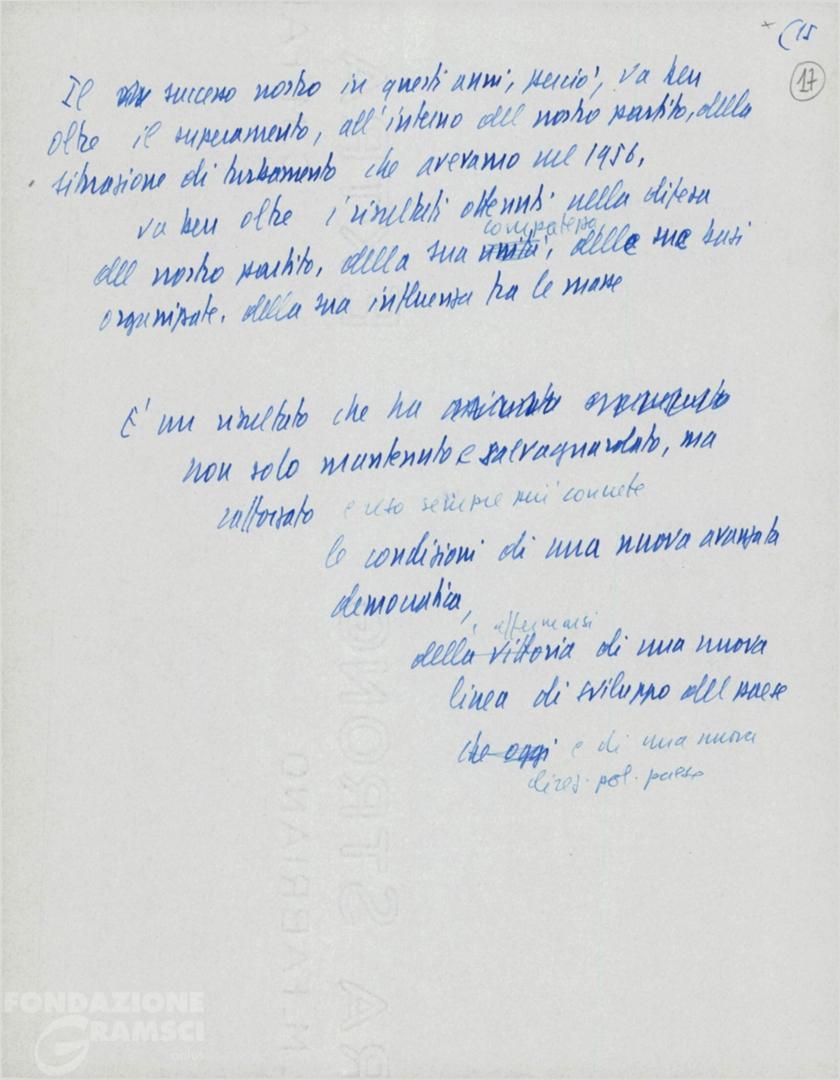 (15
17
Il successo nostro in questi anni, perciò, va ben
oltre il superamento, all'interno del nostro partito, della
situazione di turbamento che avevamo nel 1956,
va ben oltre i risultati ottenuti nella difesa
compatezza
del nostro partito, della sua unità, delle sue basi
organizzate, della sua influenza tra le masse
E' un risultato che ha
non solo mantenuto e salvaguardato, ma
rafforzato e reso sempre più concrete
le condizioni di una nuova avanzata
democratica,
affermarsi
della vittoria di una nuova
linea di sviluppo del paese
che oggi e di una nuova
direz. pol. paese
FONDAZIONE
GRAMSCI
onlus
FABRIANO